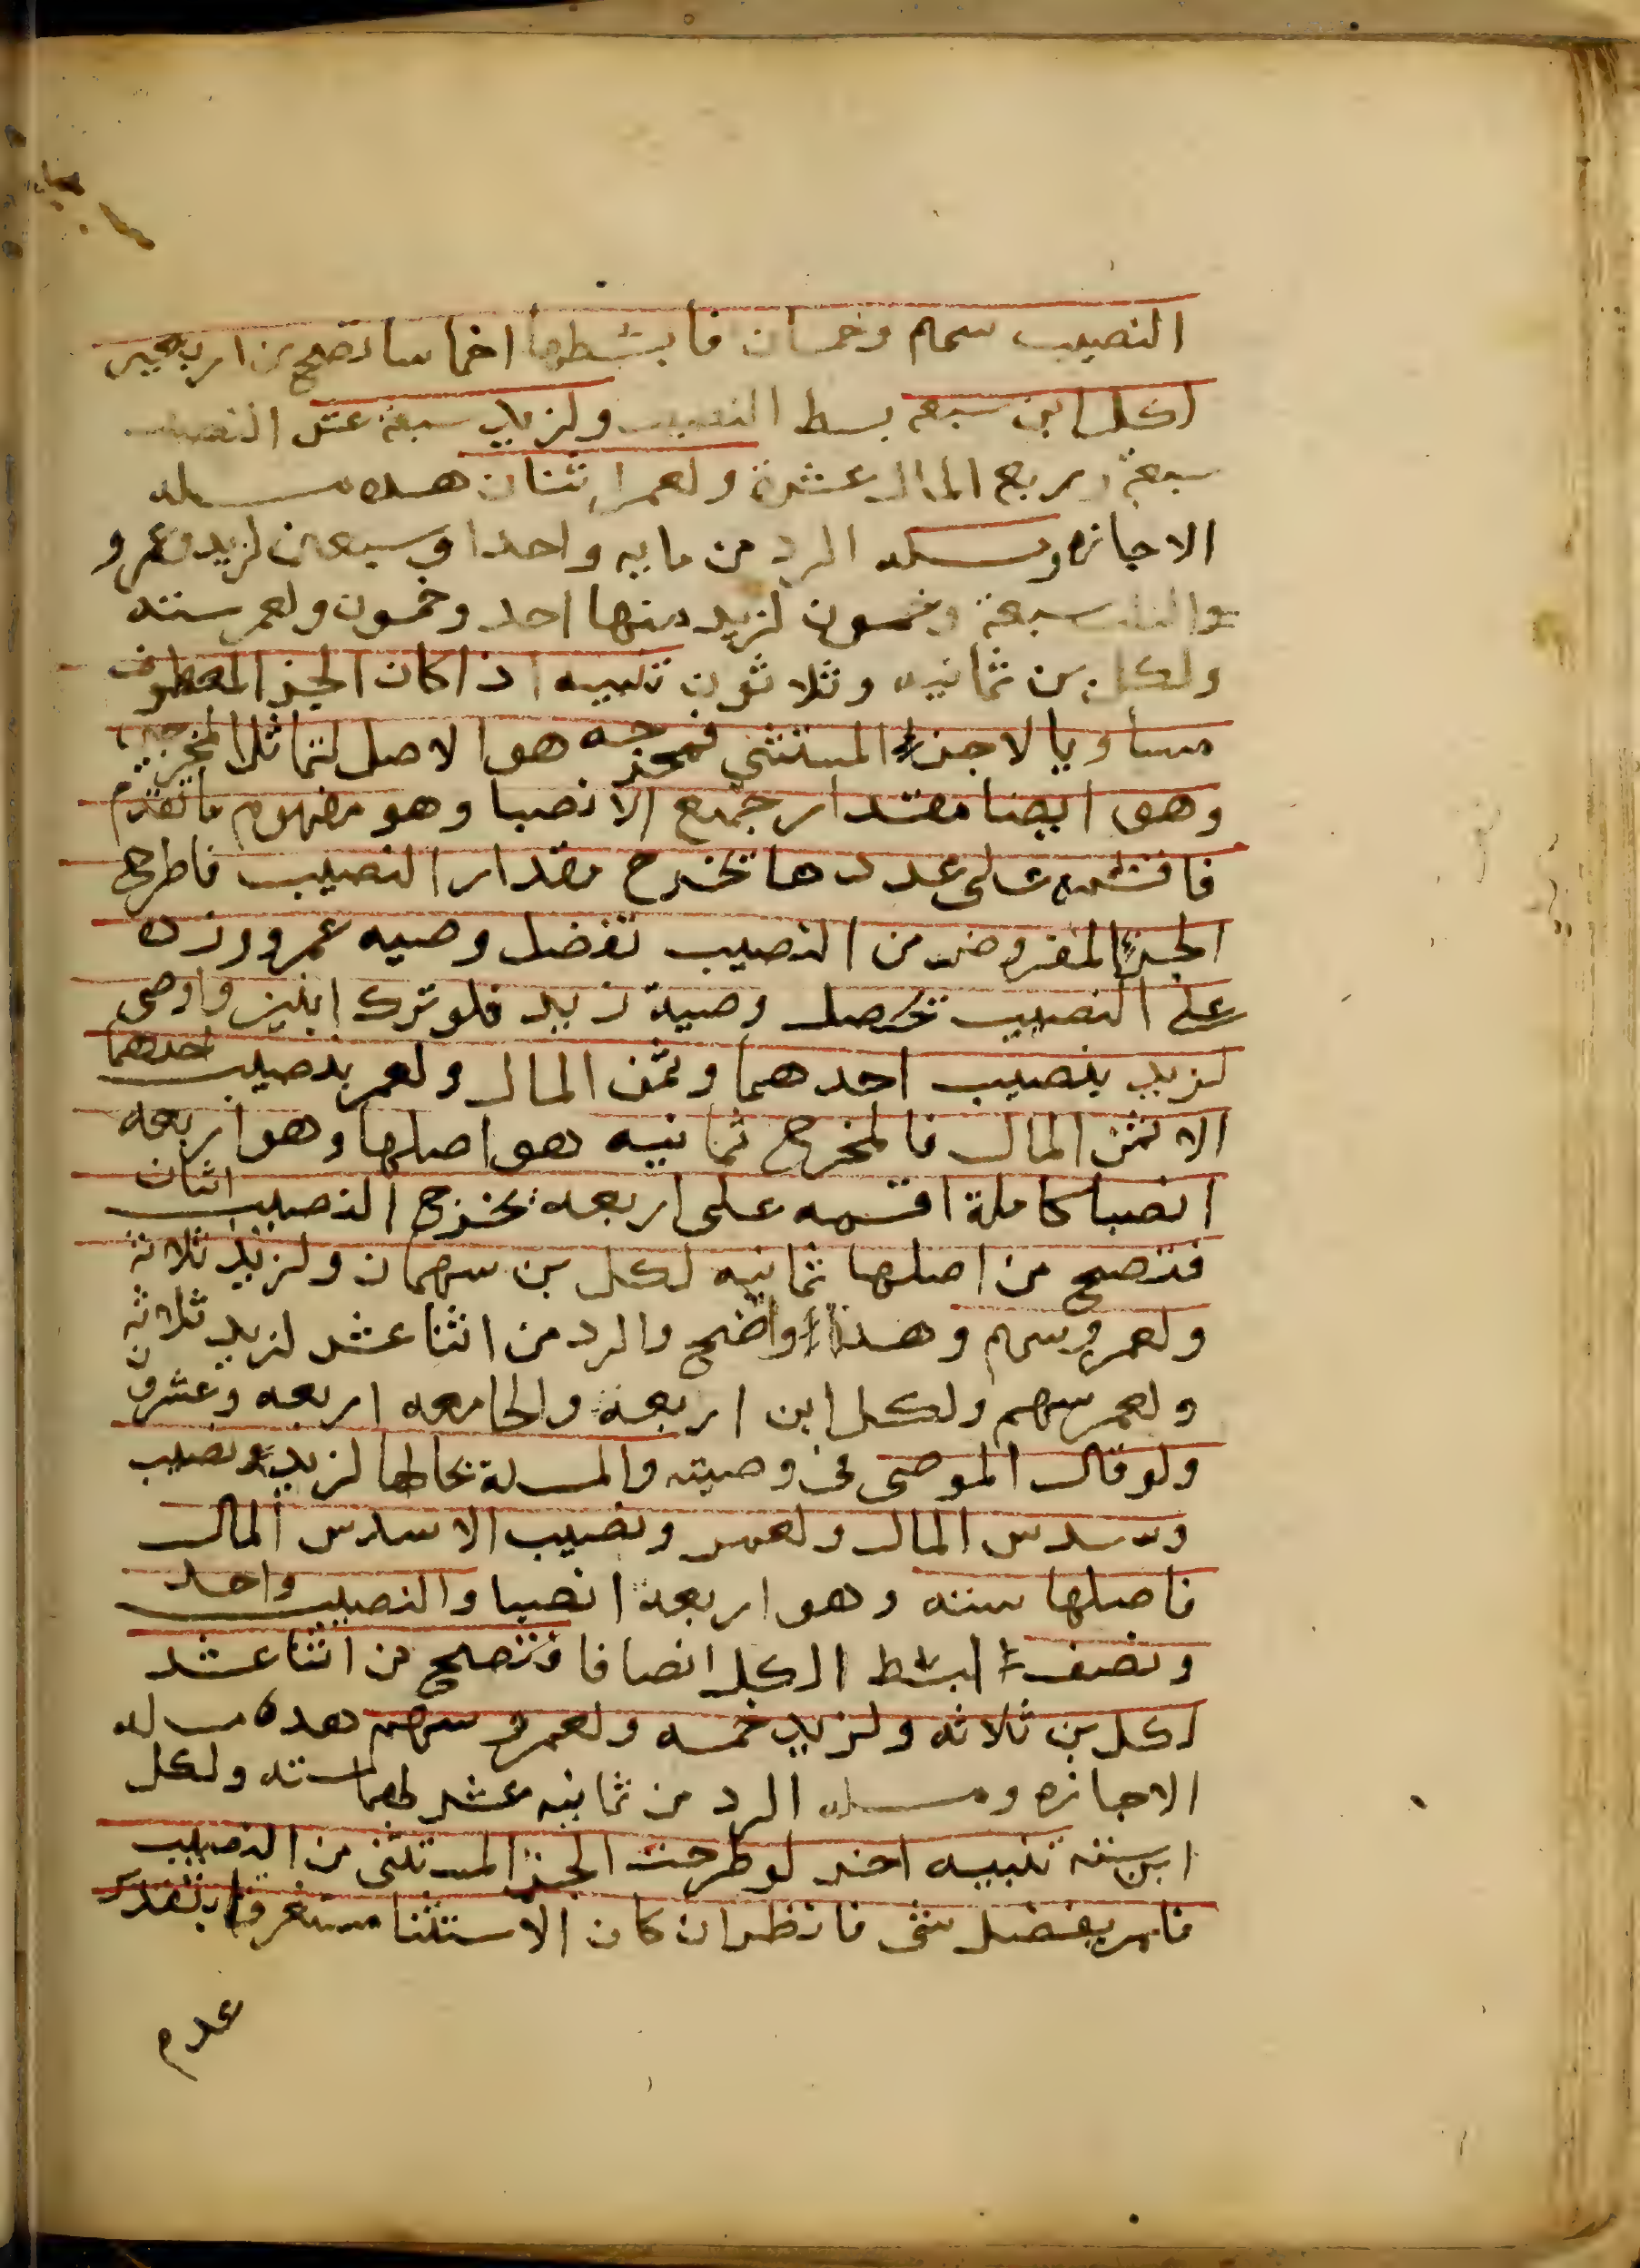 النصيب سهم وخمسان فابسطها اخماسا تصح من اربعين
لكل ابن سبعه بسط النصيب ولزيد سبعة عشر النصيب
سبعة وربع المال عشرة ولعمر اثنان هذه مسله
الاجازه ومسله الرد من مايه واحدا وسبعين لزيد وعمرو
والثلث سبعة وخمسون لزيد منها احد وخمسون ولعمر سته
ولكل بن ثمانيه وثلاثون تنبيه اذا كان الجز المعطوف
مساويا لاجزء المستثنى فمخرجه هو الاصل لتماثل المخرجين
وهو ايضا مقدار جميع الانصبا وهو مفهوم ما تقدم
فاقسمه على عددها تخرج مقدار النصيب فاطرح
الجزء المفروض من النصيب تفضل وصيه عمرو وزده
على النصيب تحصل وصية زيد فلو ترك ابنين واوصى
لزيد بنصيب احدهما وثمن المال ولعمر بنصيب احدهما
الا ثمن المال فالمخرج ثمانيه هو اصلها وهو اربعه
انصبا كاملة اقسمه على اربعه تخرج النصيب اثنان
فتصح من اصلها ثمانيه لكل بن سهمان ولزيد ثلاثة
ولعمرو سهم وهذا واضح والرد من اثنا عشر لزيد ثلاثه
ولعمر سهم ولكل ابن اربعة والجامعه اربعه وعشرون
ولو قال الموصى في وصيته والمسلة بحالها لزيد بنصيب
وسدس المال ولعمر ونصيب الا سدس المال
فاصلها سته وهو اربعة انصبا والنصيب واحد
ونصف ابسط الكل انصافا فتصح من اثنا عشر
لكل بن ثلاثه ولزيد خمسه ولعمرو سهم هده مسله
الاجازه ومسله الرد من ثمانيه عشر لهما سته ولكل
ابن سته تنبيه اخر لو طرحت الجز المستثنى من النصيب
فلم يفضل شى فانظر ان كان الاستثنا مستغرقا بتقدير
عدم